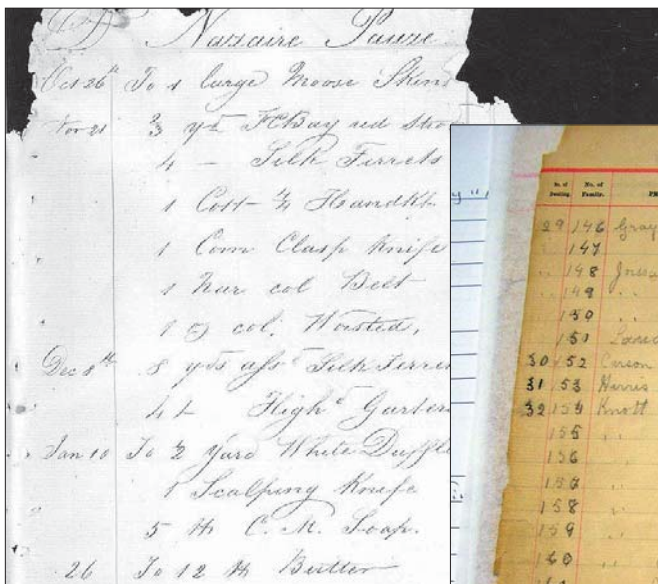 Nazaire Pauze
Oct 26th To 1 large Moose Skin
Nov 21 3 yds red
4 - Silk Ferrets
1 Cott Handkf
1 Com Clasp Knife
1 Nar col Belt
1 col. Worsted,
Dec 8th 8 yds asst Silk Ferret
4 High Garter
Jan 10 To 2 yard White Duffle
1 Scalping Knife
5 lb C. M. Soap.
26 To 12 lb Butter
No. of No. of
Family.
29 146 Gray
147
148
149
150
151
30 152
31 153 Harris
32 154 Knott
155
156
157
158
159
160